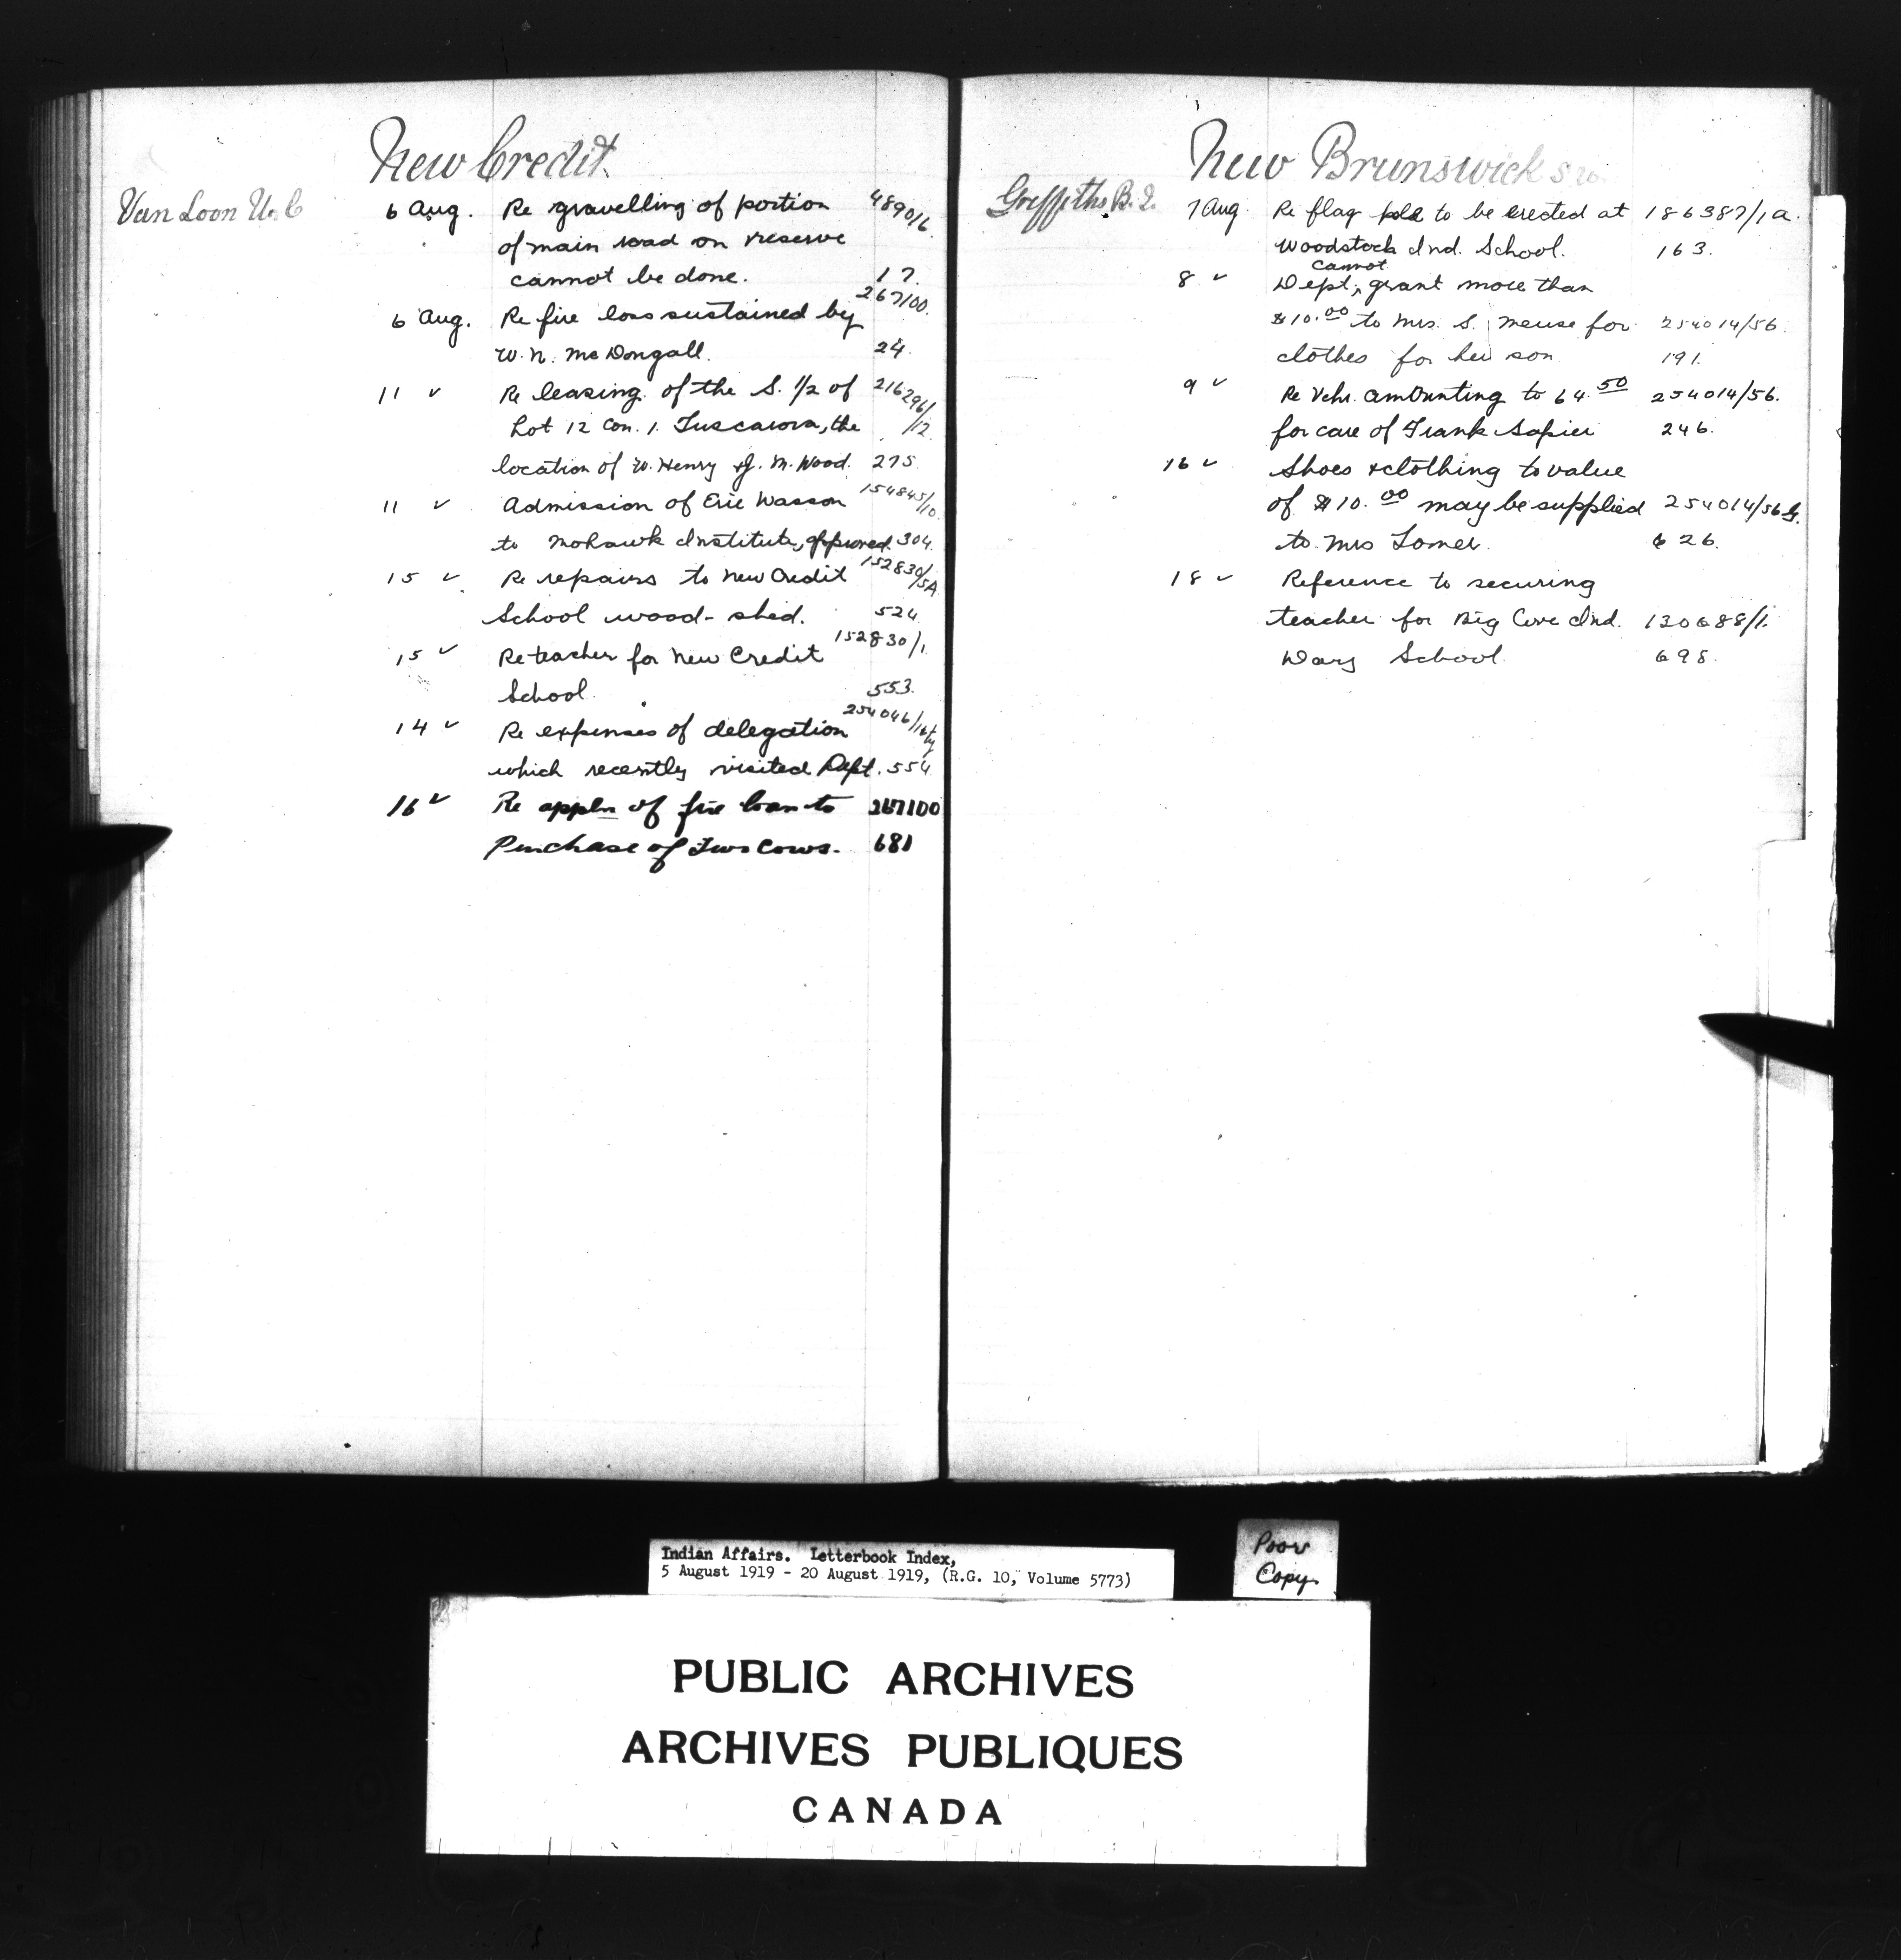 New Credit.
Van Loon W. C
6 Aug. Re gravelling of portion 48901/6
of main road on reserve
cannot be done. 17.
6 Aug. Re fire loss sustained by 267100.
W. N. McDougall. 24.
11 " Re leasing of the S. 1/2 of 216296/
Lot 12 Con. 1. Tuscarora, the /12.
location of W. Henry & J. M. Wood. 275
11 " Admission of Erie Wasson 154845/10.
to Mohawk Institute, approved. 304.
15 " Re repairs to New Credit 152830/5A
School wood-shed. 524
15 " Re teacher for New Credit 152830/1.
School. 553.
14 " Re expenses of delegation 254046/16
which recently visited Dept. 554
16 " Re appln of fire loan to 267100
Purchase of Two Cows. 681
New Brunswick S W.
Griffiths B. I.
7 Aug. Re flag pole to be erected at 186387/1a.
Woodstock Ind. School. 163.
cannot
8 " Dept. ^ grant more than
$10.00 to Mrs. S. Meuse for 254014/56.
clothes for her son 191.
9 " Re Vchr. amounting to 64.50 254014/56.
for care of Frank Sapier 246.
16 " Shoes & clothing to value
of $10.00 may be supplied 254014/56 G.
to Mrs Tomer. 626.
18 " Reference to securing
teacher for Big Cove Ind. 130688/1.
Day School. 698.
Indian Affairs. Letterbook Index,
5 August 1919 - 20 August 1919, (R.G. 10, Volume 5773)
Poor
Copy
PUBLIC ARCHIVES
ARCHIVES PUBLIQUES
CANADA